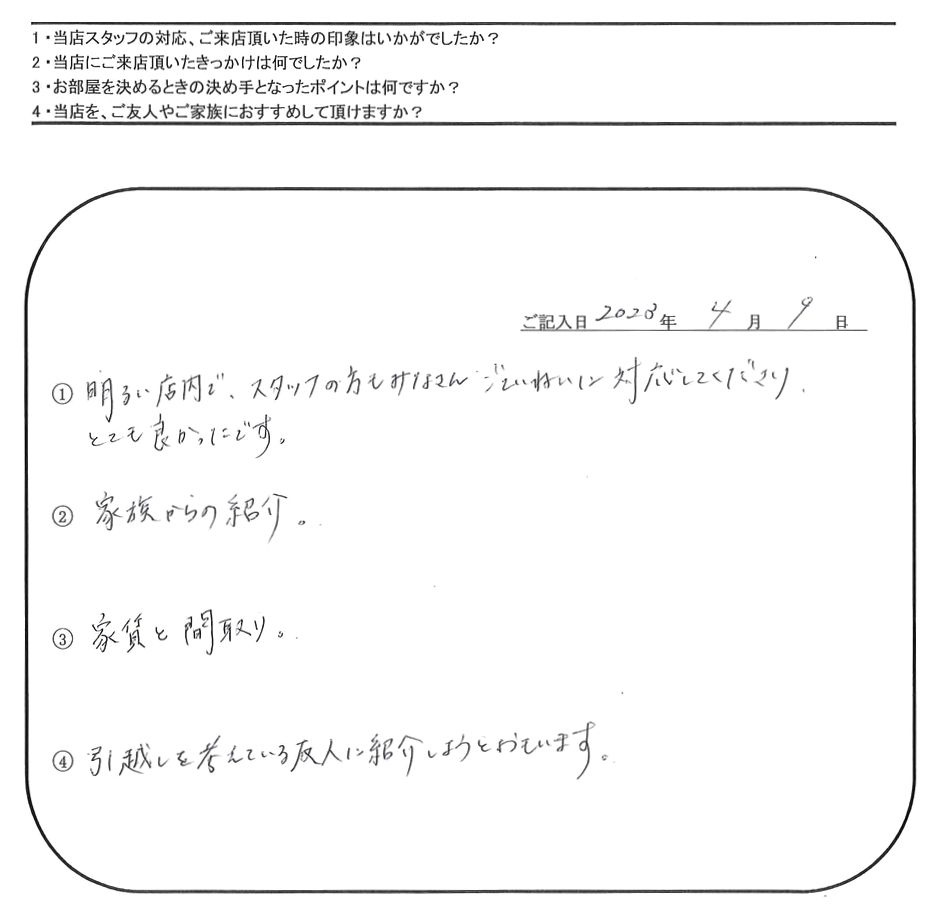 1・当店スタッフの対応、ご来店頂いた時の印象はいかがでしたか？
2・当店にご来店頂いたきっかけは何でしたか？
3・お部屋を決めるときの決め手となったポイントは何ですか？
4・当店を、ご友人やご家族におすすめして頂けますか？
ご記入日 2023年 4月 9日
① 明るい店内で、スタッフの方もみなさんごていねいに対応してくださり、
とても良かったです。
② 家族からの紹介。
③ 家賃と間取り。
④ 引越しを考えている友人に紹介しようとおもいます。